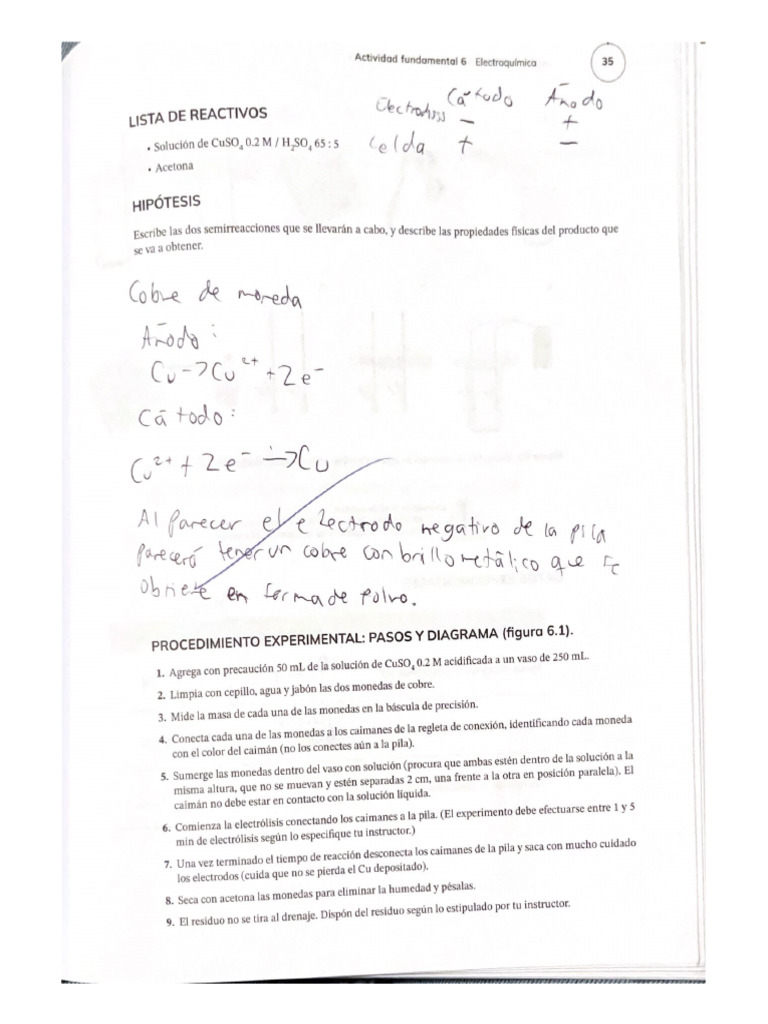 Actividad fundamental 6 Electroquímica 35
Electrodos Cátodo Ánodo
− +
Celda + −
LISTA DE REACTIVOS
• Solución de CuSO₄ 0.2 M / H₂SO₄ 65 : 5
• Acetona
HIPÓTESIS
Escribe las dos semirreacciones que se llevarán a cabo, y describe las propiedades físicas del producto que
se va a obtener.
Cobre de moneda
Ánodo:
Cu → Cu²⁺ + 2e⁻
Cátodo:
Cu²⁺ + 2e⁻ → Cu
Al parecer el electrodo negativo de la pila
pareceró tener un cobre con brillo metálico que se
obtiene en forma de polvo.
PROCEDIMIENTO EXPERIMENTAL: PASOS Y DIAGRAMA (figura 6.1).
1. Agrega con precaución 50 mL de la solución de CuSO₄ 0.2 M acidificada a un vaso de 250 mL.
2. Limpia con cepillo, agua y jabón las dos monedas de cobre.
3. Mide la masa de cada una de las monedas en la báscula de precisión.
4. Conecta cada una de las monedas a los caimanes de la regleta de conexión, identificando cada moneda
con el color del caimán (no los conectes aún a la pila).
5. Sumerge las monedas dentro del vaso con solución (procura que ambas estén dentro de la solución a la
misma altura, que no se muevan y estén separadas 2 cm, una frente a la otra en posición paralela). El
caimán no debe estar en contacto con la solución líquida.
6. Comienza la electrólisis conectando los caimanes a la pila. (El experimento debe efectuarse entre 1 y 5
min de electrólisis según lo especifique tu instructor.)
7. Una vez terminado el tiempo de reacción desconecta los caimanes de la pila y saca con mucho cuidado
los electrodos (cuida que no se pierda el Cu depositado).
8. Seca con acetona las monedas para eliminar la humedad y pésalas.
9. El residuo no se tira al drenaje. Dispón del residuo según lo estipulado por tu instructor.